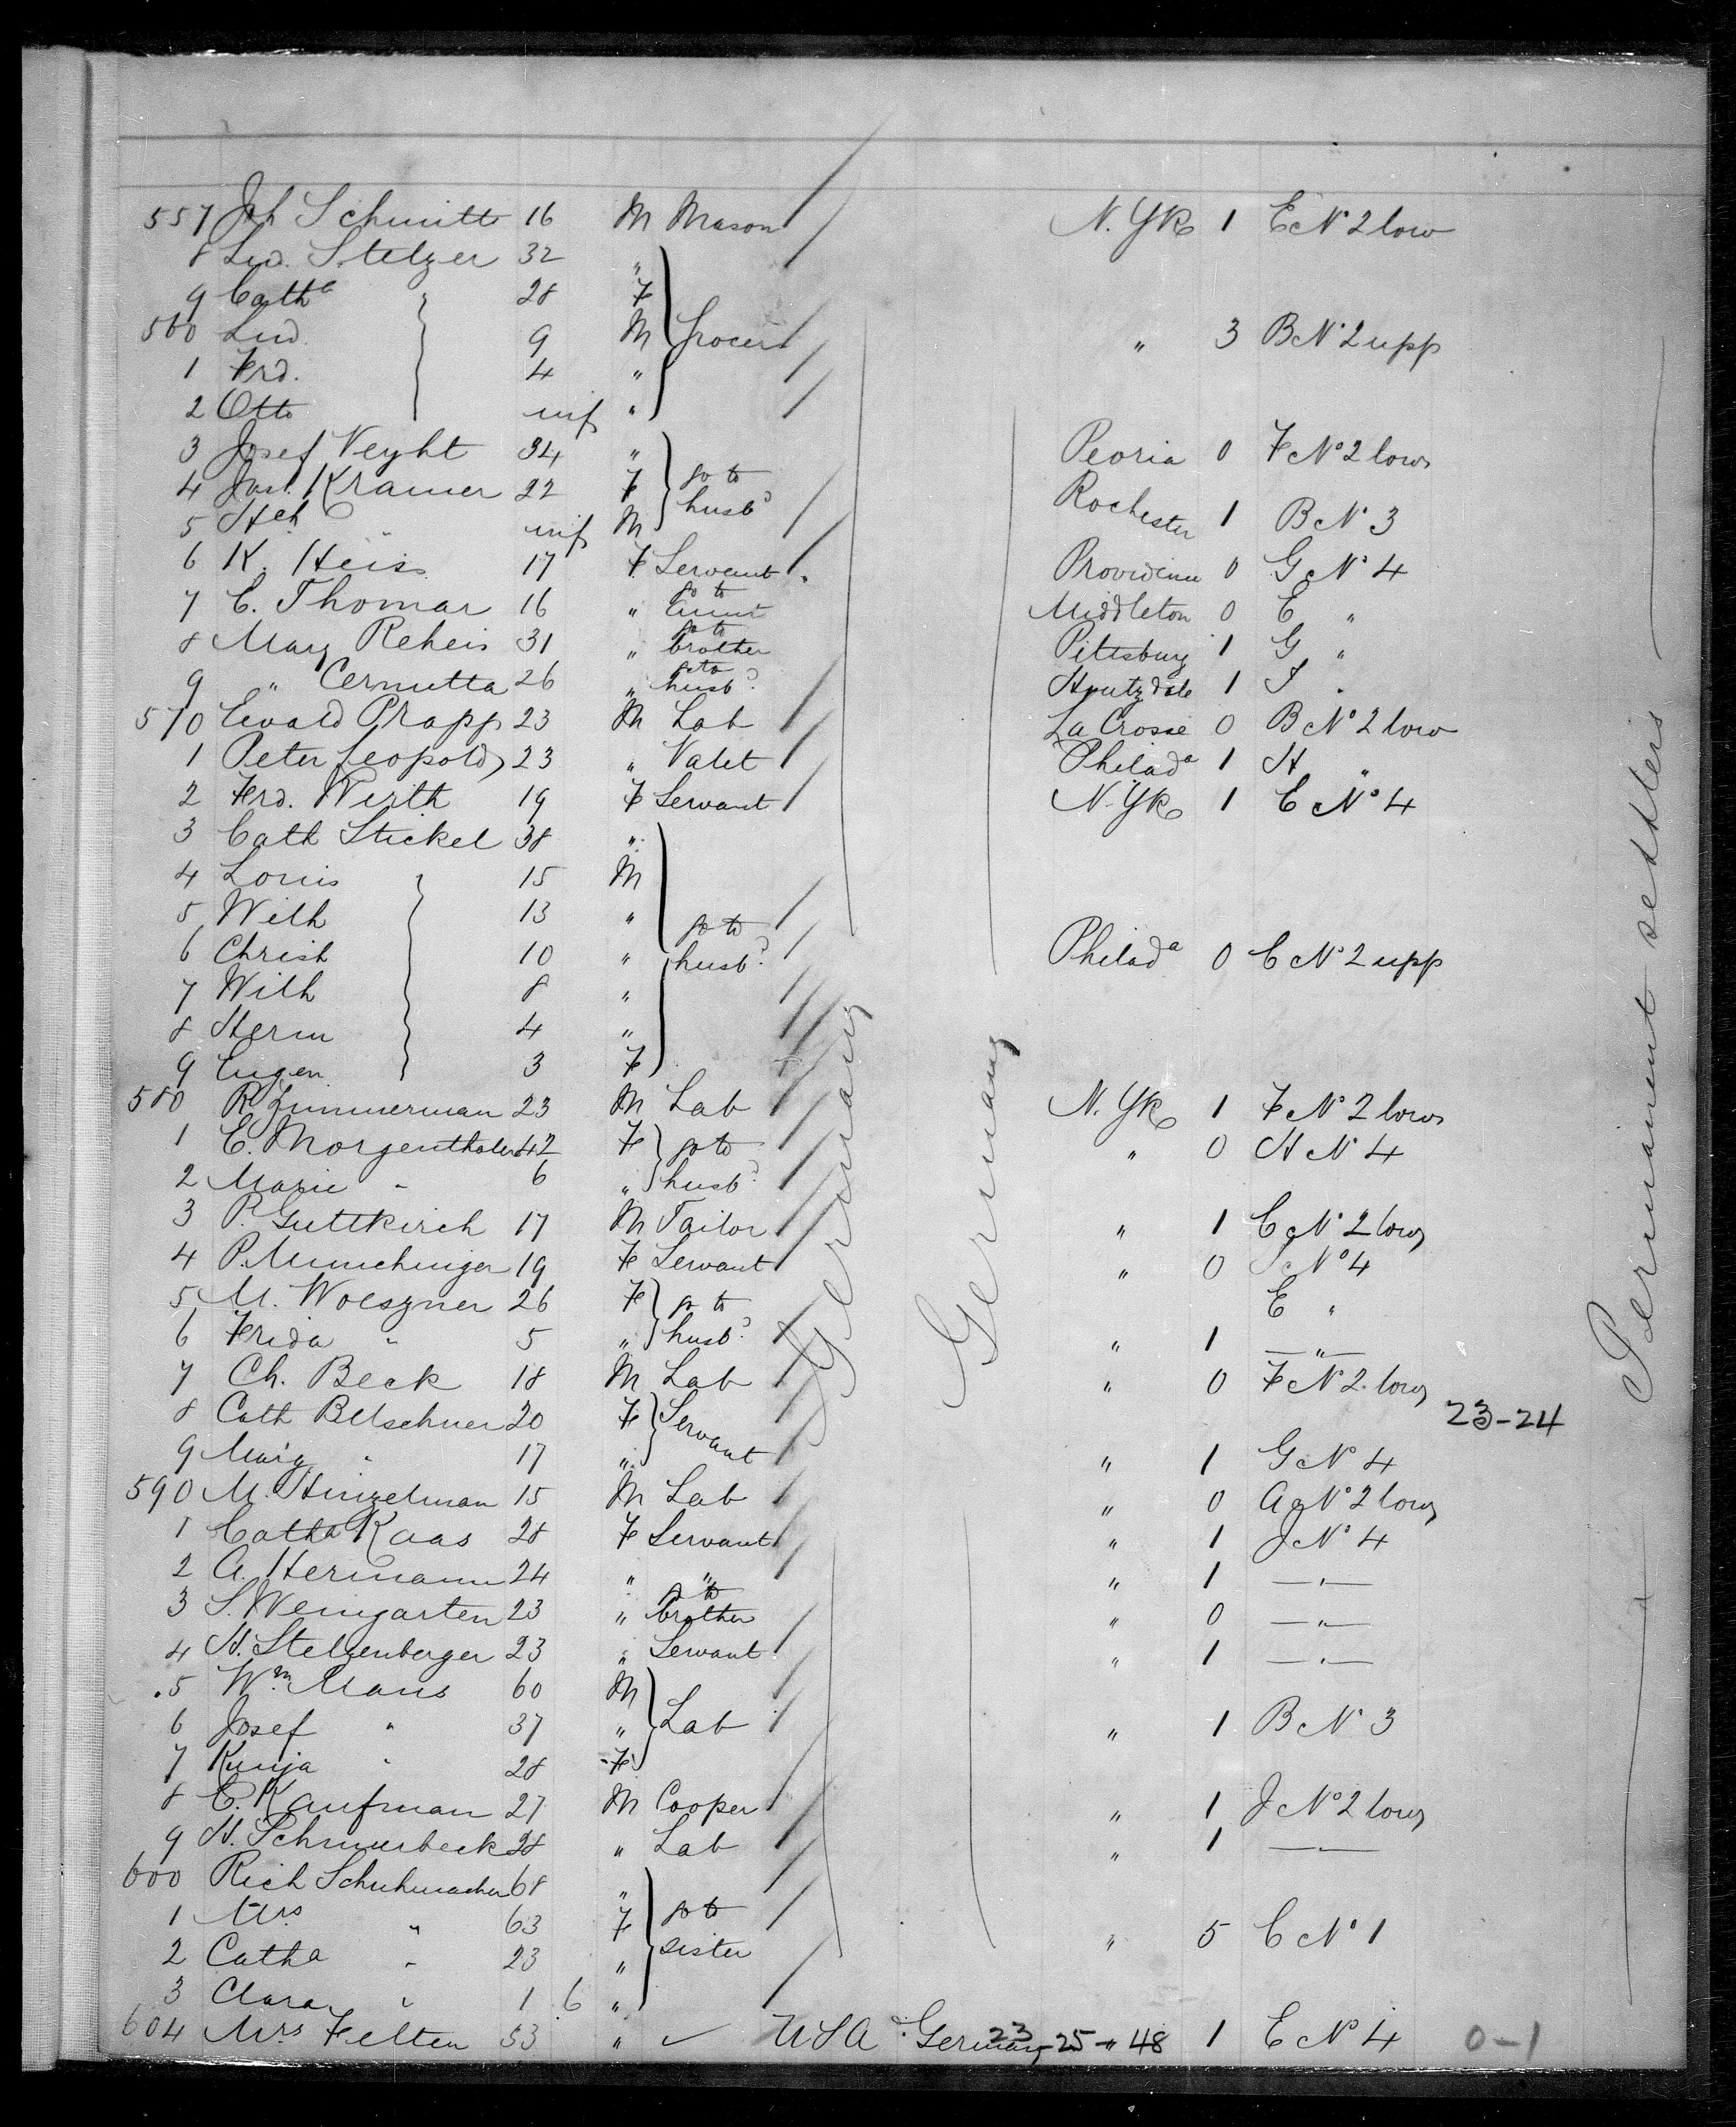 557 Joh Schmitt 16 M Mason N. Yk 1 E No 2 low
8 Lud. Stelzer 32 "
9 Catha " 28 F
560 Lud. 9 M Grocer " 3 B No 2 upp
1 Frd. 4 "
2 Otto inf "
3 Josef Veyht 34 " Peoria 0 F No 2 low
4 Kramer 22 F go to husbd Rochester 1 B No 3
5 Hch " inf M
6 K. Heiss 17 F Servant Providence 0 G No 4
7 C. Thomas 16 " go to aunt Middleton 0 E "
8 Mary Reheis 31 " go to brother Pittsburg 1 G "
9 " Cernutta 26 " go to husbd 1 J "
570 Ewald Prapp 23 M Lab La Crosse 0 B No 2 low
1 Peter Leopold 23 " Valet Philada 1 H "
2 Frd. Wirth 19 F Servant N. Yk 1 E No 4
3 Cath Stickel 38 "
4 Louis 15 M
5 Wilh 13 " go to
6 Christ 10 " husbd Philada 0 C No 2 upp
7 Wilh 8 "
8 Herm 4 "
9 Eugen 3 F
580 R. Zimmerman 23 M Lab N. Yk 1 F No 2 low
1 E. Morgenthaler 42 F go to " 0 H No 4
2 Marie " 6 " husbd
3 P. Guttkirch 17 M Tailor " 1 C No 2 low
4 P. Munchinger 19 F Servant " 0 No 4
5 M. Woeszner 26 F go to E "
6 Frida " 5 " husbd " 1 — " —
7 Ch. Beck 18 M Lab " 0 F No 2 low
23-24
8 Cath Betschner 20 F Servant
9 Marg " 17 " " 1 G No 4
590 M. Hinzelman 15 M Lab " 0 A No 2 low
1 Catha Kaas 28 F Servant " 1 J No 4
2 A. Hermann 24 " " " 1 — " —
3 S. Weingarten 23 " go to brother " 0 — " —
4 H. Stelzenberger 23 " Servant " 1 — " —
5 Wm Maus 60 M
6 Josef " 37 " Lab " 1 B No 3
7 Kunja " 28 F
8 C. Kaufman 27 M Cooper " 1 J No 2 low
9 H. Schnurbeck 28 " Lab " 1 — " —
600 Rich Schuhmacher 68 "
1 Mrs " 63 F go to
2 Catha " 23 " sister " 5 C No 1
3 Clara " 1 6 "
604 Mrs Felten 53 " ✓ USA Germany 23-25-48 1 E No 4 0-1
Germany
Germany
Permanent settlers